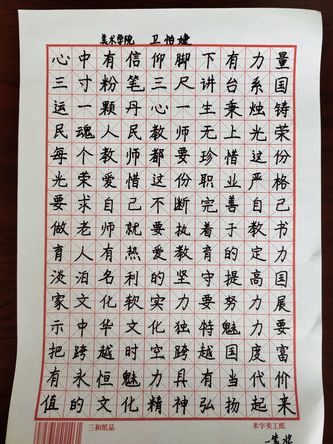 美术学院 卫怡婕
心中有信仰脚下有力量
三寸粉笔三尺讲台系国
运一颗丹心一生秉烛铸
民魂人民教师无上光荣
每个教师都要珍惜这份
光荣爱惜这份职业严格
要求自己不断完善自己
做老师就要执着于教书
育人有热爱教育的定力
淡泊名利的坚守提高国
家文化软实力要努力展
示中华文化独特魅力
把跨越时空跨越国度富
有永恒魅力具有当代价
值的文化精神弘扬起来
三和纸品
米字美工纸
一等奖